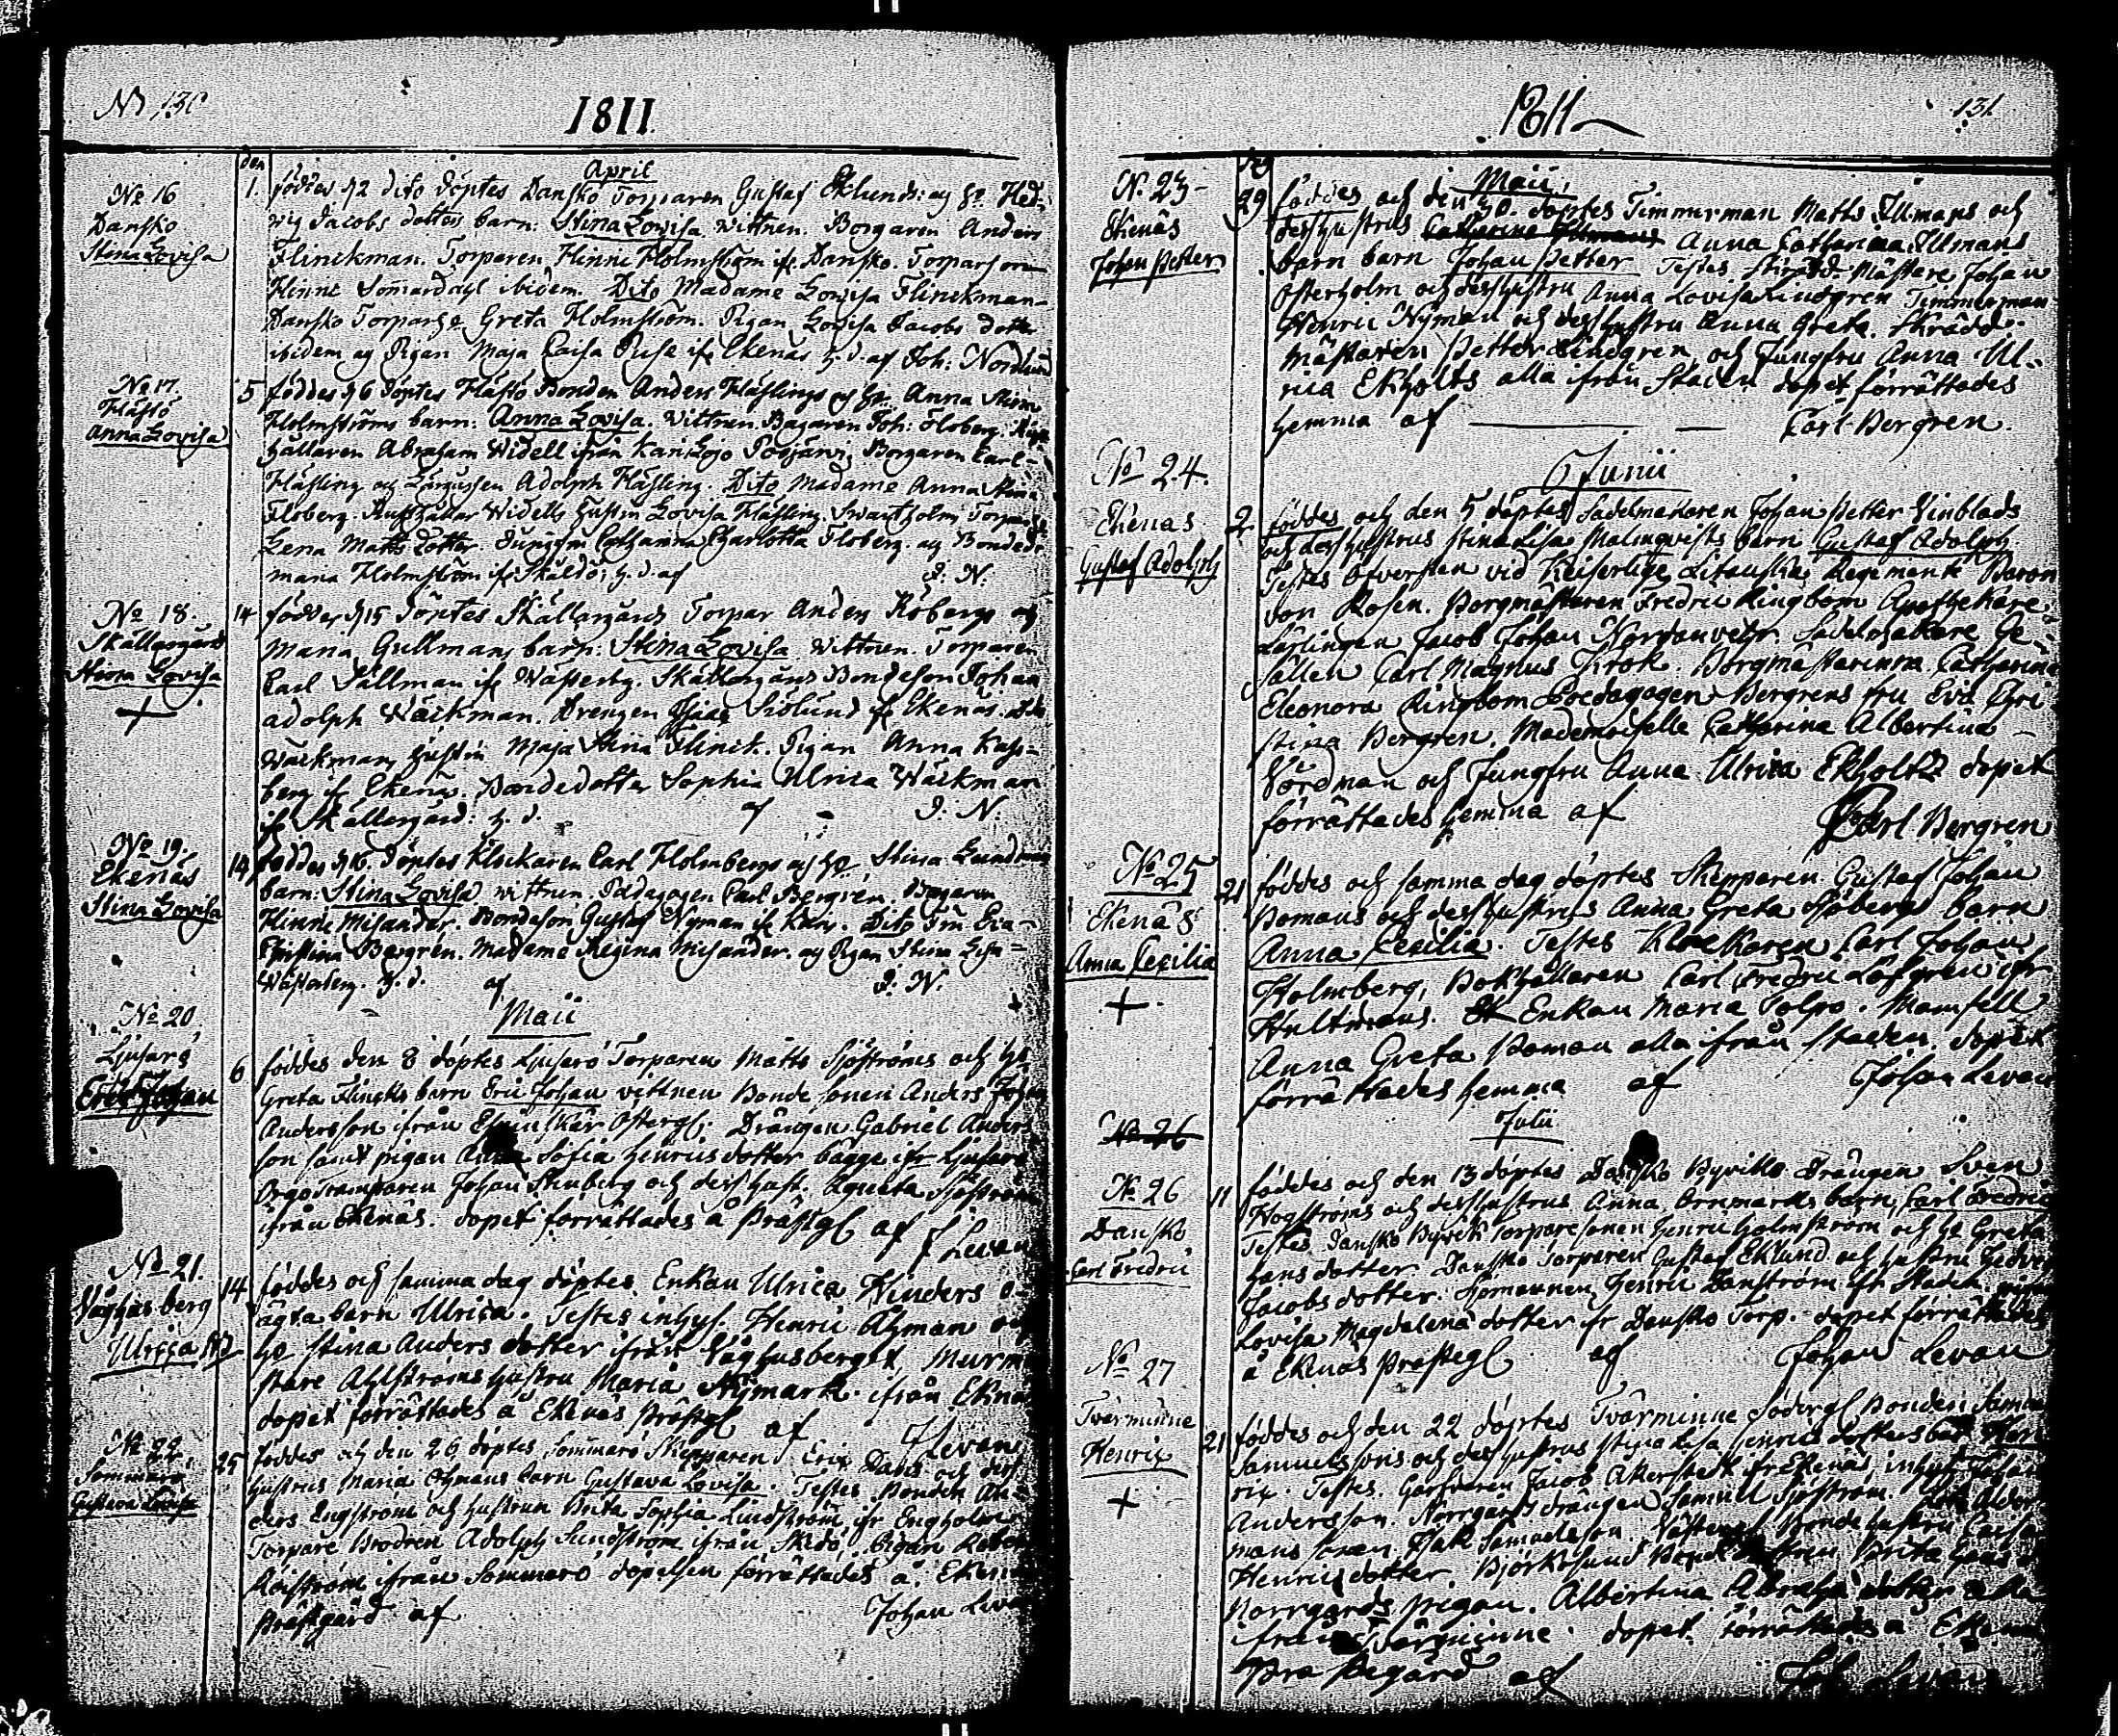 No 130
1811.
April
No 16
Dansko
Stina Lovisa
den
1. föddes d 2 dito döptes Dansko Torparen Gustaf Eklunds og Ho. Hed-
wig Jacobs dotters barn: Stina Lovisa. Wittnen. Borgaren Anders
Flinckman. Torparen Hinric Holmström ifr Dansko. Torparson
ibidem. Dito Madame Lovisa Flinckman-
Dansko Greta Holmström. Pigan Lovisa Jacobs dotter
ibidem og Pigan Maja Caisa ifr Ekenäs h. d. af Joh: Norlund
No 17.
Hästö
Anna Lovisa
5 föddes d 6 döptes Hästö Bonden Anders Häslings og Ho. Anna Stina
Holmströms barn: Anna Lovisa. Wittnen. Joh: Floberg.
hållaren Abraham Widell ifrån Karislojo Borgaren Carl
Häsling og Adolph Häsling. Dito Madame Anna Stina
Floberg. Widells hustru Lovisa Häsling
Lena Matts dotter. Jungfru Charlotta Floberg. og
Maria Holmström ifr Skåldö; h. d. af J. N.
No 18.
Skällargård
Stina Lovisa
+
14 föddes d 15 döptes Skällargårds Torpar Anders Röbergs og
Maria Gullmans barn: Stina Lovisa. Wittnen. Torparen
Carl Sällman ifr Wästerby. Skällargårds Bondeson Johan
Adolph Wäckman. Drengen Isaac Siölund ifr Ekenäs.
Wäckmans hustru Maja Stina Flinck. Pigan Anna
berg ifr Ekenäs. Bondedotter Sophia Ulrica Wäckman
ifr Skällargård. h. d. af J. N.
No 19.
Ekenäs
Stina Lovisa
14 föddes d 16 döptes Klockaren Carl Holmbergs og Ho. Stina
barn: Stina Lovisa wittnen. Pædagogen Carl Bergren. Borgaren
Hinric Misander. Bondeson Gustaf Nyman ifr Karis. Dito Fru Eva
Christina Bergren. Madame Regina Misander. og Pigan Stina Lisa
h. d. af J. N.
Maii
No 20
Ljusarö
Eric Johan
6 föddes den 8 döptes Ljusarö Torparen Matts Sjöströms och Ho
Greta Flincks barn Eric Johan vittnen Bonde sonen Anders Johan
Andersson ifrån Drängen Gabriel Anders
son samt pigan Anna Sofia Henricsdotter bägge ifr Ljusarö
Orgotramparen Johan Stenberg och dess hust. Agneta Sjöström
ifrån Ekenäs. dopet förrättades å Prästg af J Levan
No 21.
Våghusberg
Ulrica
14 föddes och samma dag döptes Enkan Ulrica Hinders o-
ägta barn Ulrica. Testes inhys. Henric Öhman och
Ho Stina Anders dotter ifrån Våghusberget, Murmä
stare Ahlströms hustru Maria Nymark ifrån Ekenäs
dopet förrättades å Ekenäs Prästg af J Levan
No 22.
Sommarö
Gustava Lovisa
25 föddes och den 26 döptes Sommarö Skepparen Eric Dahls och dess
hustrus Maria Öhmans barn Gustava Lovisa. Testes Bonden An-
ders Engström och hustrun Brita Sophia Lindström ifr Engholm
Torpare Brodren Adolph Sundström ifrån Skedö. Pigan
ifrån Sommarö dopelsen förrättades å Ekenäs
Prästgård af Johan Levan
1811
131.
Maii.
N. 23-
Ekenäs
Johan Petter
29 föddes och den 30. döptes Timmerman Matts Illmans och
desshustrus Anna Catharina Illmans
barn barn Johan Petter Testes Skrädd. Mästare Johan
Österholm och desshustru Anna Lovisa Lindgren Timmerman
Henric Nyman och desshustru Anna Greta. Skrädd.
mästaren Petter Lindgren, och Jungfru Anna Ul-
rica Ekholts alla ifrån Staden dopet förrättades
hemma af Carl Bergren.
Junii
No 24.
Ekenäs
Gustaf Adolph
2. föddes och den 5 döptes Sadelmakaren Johan Petter Linblads
och desshustrus Stina Lisa Malmqvists barn Gustaf Adolph.
Testes Öfversten vid Keiserlige Litauska Regemente Baron
von Rosen. Borgmästaren Fredric Ringbom Apothekare
Lärlingen Jacob Johan Sadelmakare Ge-
sällen Carl Magnus Krok. Borgmästarinna Catharina
Eleonora Ringbom Predagogen Bergrens fru Eva Chri-
stina Bergren. Mademoiselle Catharina Albertina
Nordman och Jungfru Anna Ulrica Ekholtz dopet
förrättades hemma af Carl Bergren
No 25
Ekenäs
Anna Cecilia
+
21 föddes och samma dag döptes Skepparen Gustaf Johan
Bomans och desshustrus Anna Greta Sjöbergs barn
Anna Cecilia. Testes Klockaren Carl Johan
Holmberg, Bokhållaren Carl Fredric Löfgren ifr
Hultmans. Enkan Maria Solpo. Mamsell
Anna Greta Boman alla ifrån staden. dopet
förrättades hemma af Johan Levan
Julii
No 26
No 26
Dansko
Carl Fredric
11 föddes och den 13 döptes Dansko Byvik Drängen Sven
Högströms och desshustrus Anna Örnmarks barn, Carl Fredric
Testes Dansko Byvik torparesonen Henric Holmström och Ho Greta
Hans dotter. Dansko Torparen Gustaf Eklund och hustru Hedvig
Jacobs dotter. Sjömannen Henric Danström ifr Staden pigan
Lovisa Magdalena dotter ifr Dansko Torp. dopet förrättades
å Ekenäs Prästeg af Johan Levan
No 27
Tvärminne
Henrix
+
21 föddes och den 22 döptes Tvärminne Söderg Bonden Samuel
Samuelssons och desshustrus Stina Lisa Henricsdotters barn Hen
rix. Testes. Garfvaren Jacob Åkerstedt ifr Ekenäs inhys Johan
Andersson. Norrgårds drängen Samuel Sjöström.
mans sonen Isak Samuelsson Bonde hustru Caisa
Henricsdotter. Björksund Brita Hans
Norrgårds pigan. Albertina Abrahamsdotter alla
ifrån Tvärminne. dopet förrättades å Ekenäs
Prästegård af Joh Levan